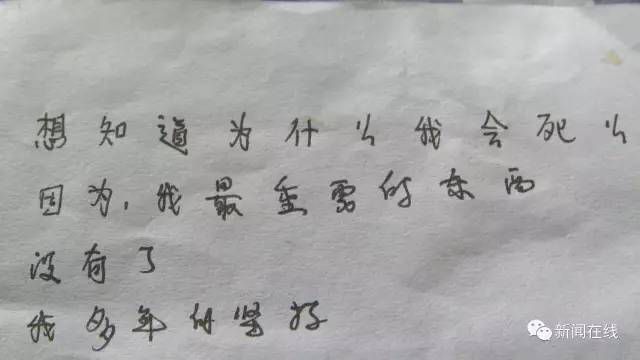 想知道为什么我会死么
因为,我最重要的东西
没有了
我多年的坚持
新闻在线